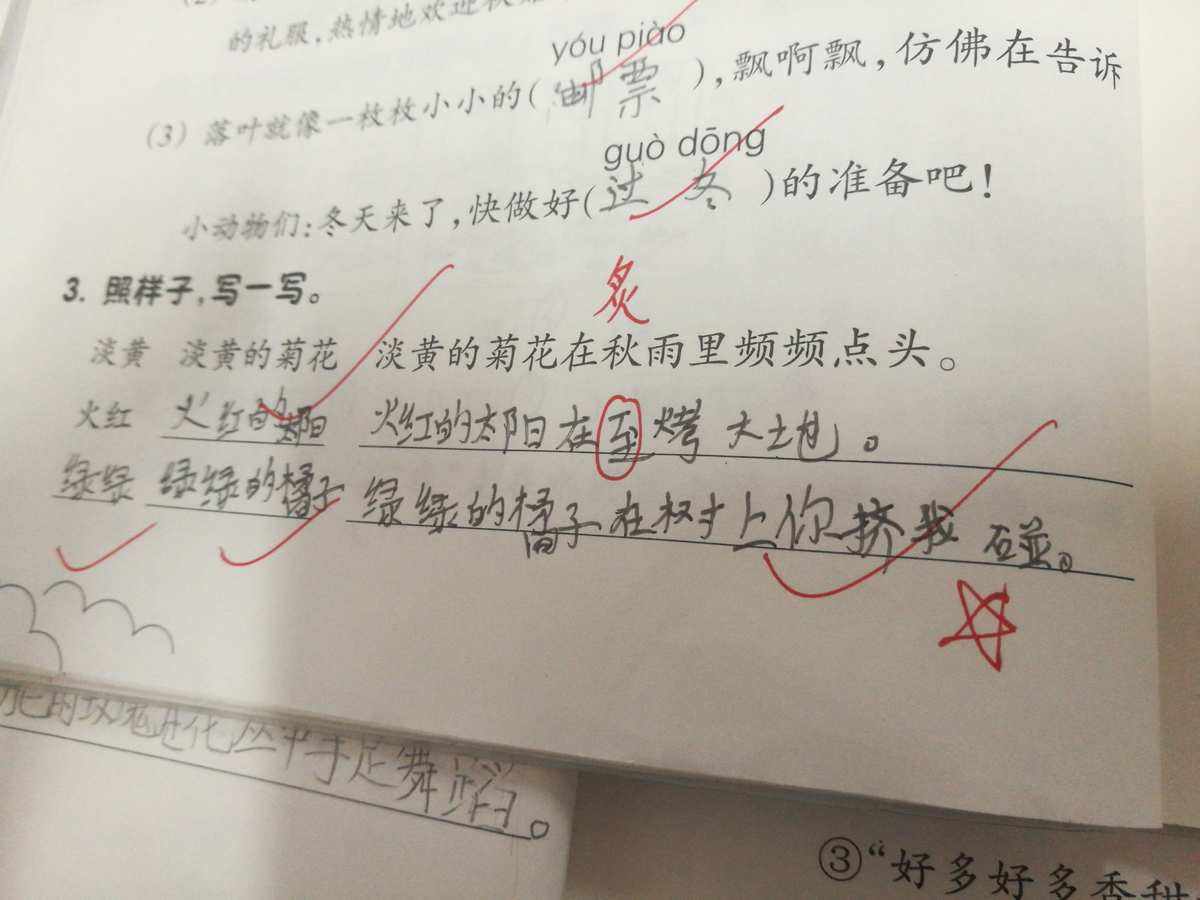 的礼服,热情地欢迎秋姑
yóu piào
(3) 落叶就像一枚枚小小的(邮票),飘啊飘,仿佛在告诉
guò dōng
小动物们:冬天来了,快做好(过冬)的准备吧!
3. 照样子,写一写。
炙
淡黄 淡黄的菊花 淡黄的菊花在秋雨里频频点头。
火红 火红的太阳 火红的太阳在至烤大土地。
绿绿 绿绿的橘子 绿绿的橘子在树上你挤我碰。
手足舞蹈。
③“好多好多香甜